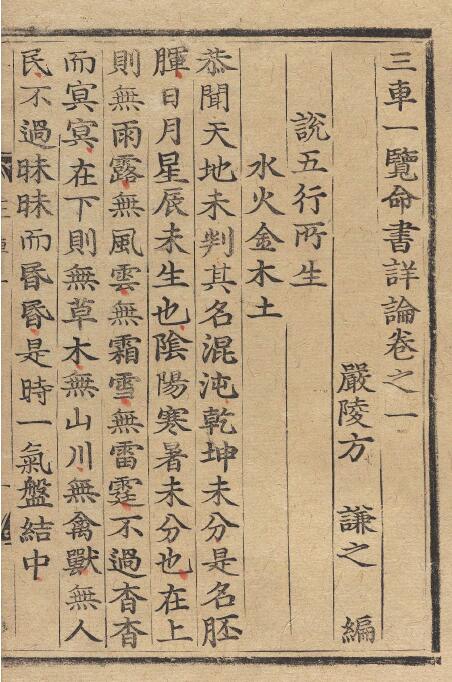 三車一覽命書詳論卷之一
嚴陵方 謙之 編
說五行所生
水火金木土
恭聞天地未判其名混沌乾坤未分是名胚
腪日月星辰未生也陰陽寒暑未分也在上
則無雨露無風雲無霜雪無雷霆不過杳杳
而冥冥在下則無草木無山川無禽獸無人
民不過昧昧而昏昏是時一氣盤結中